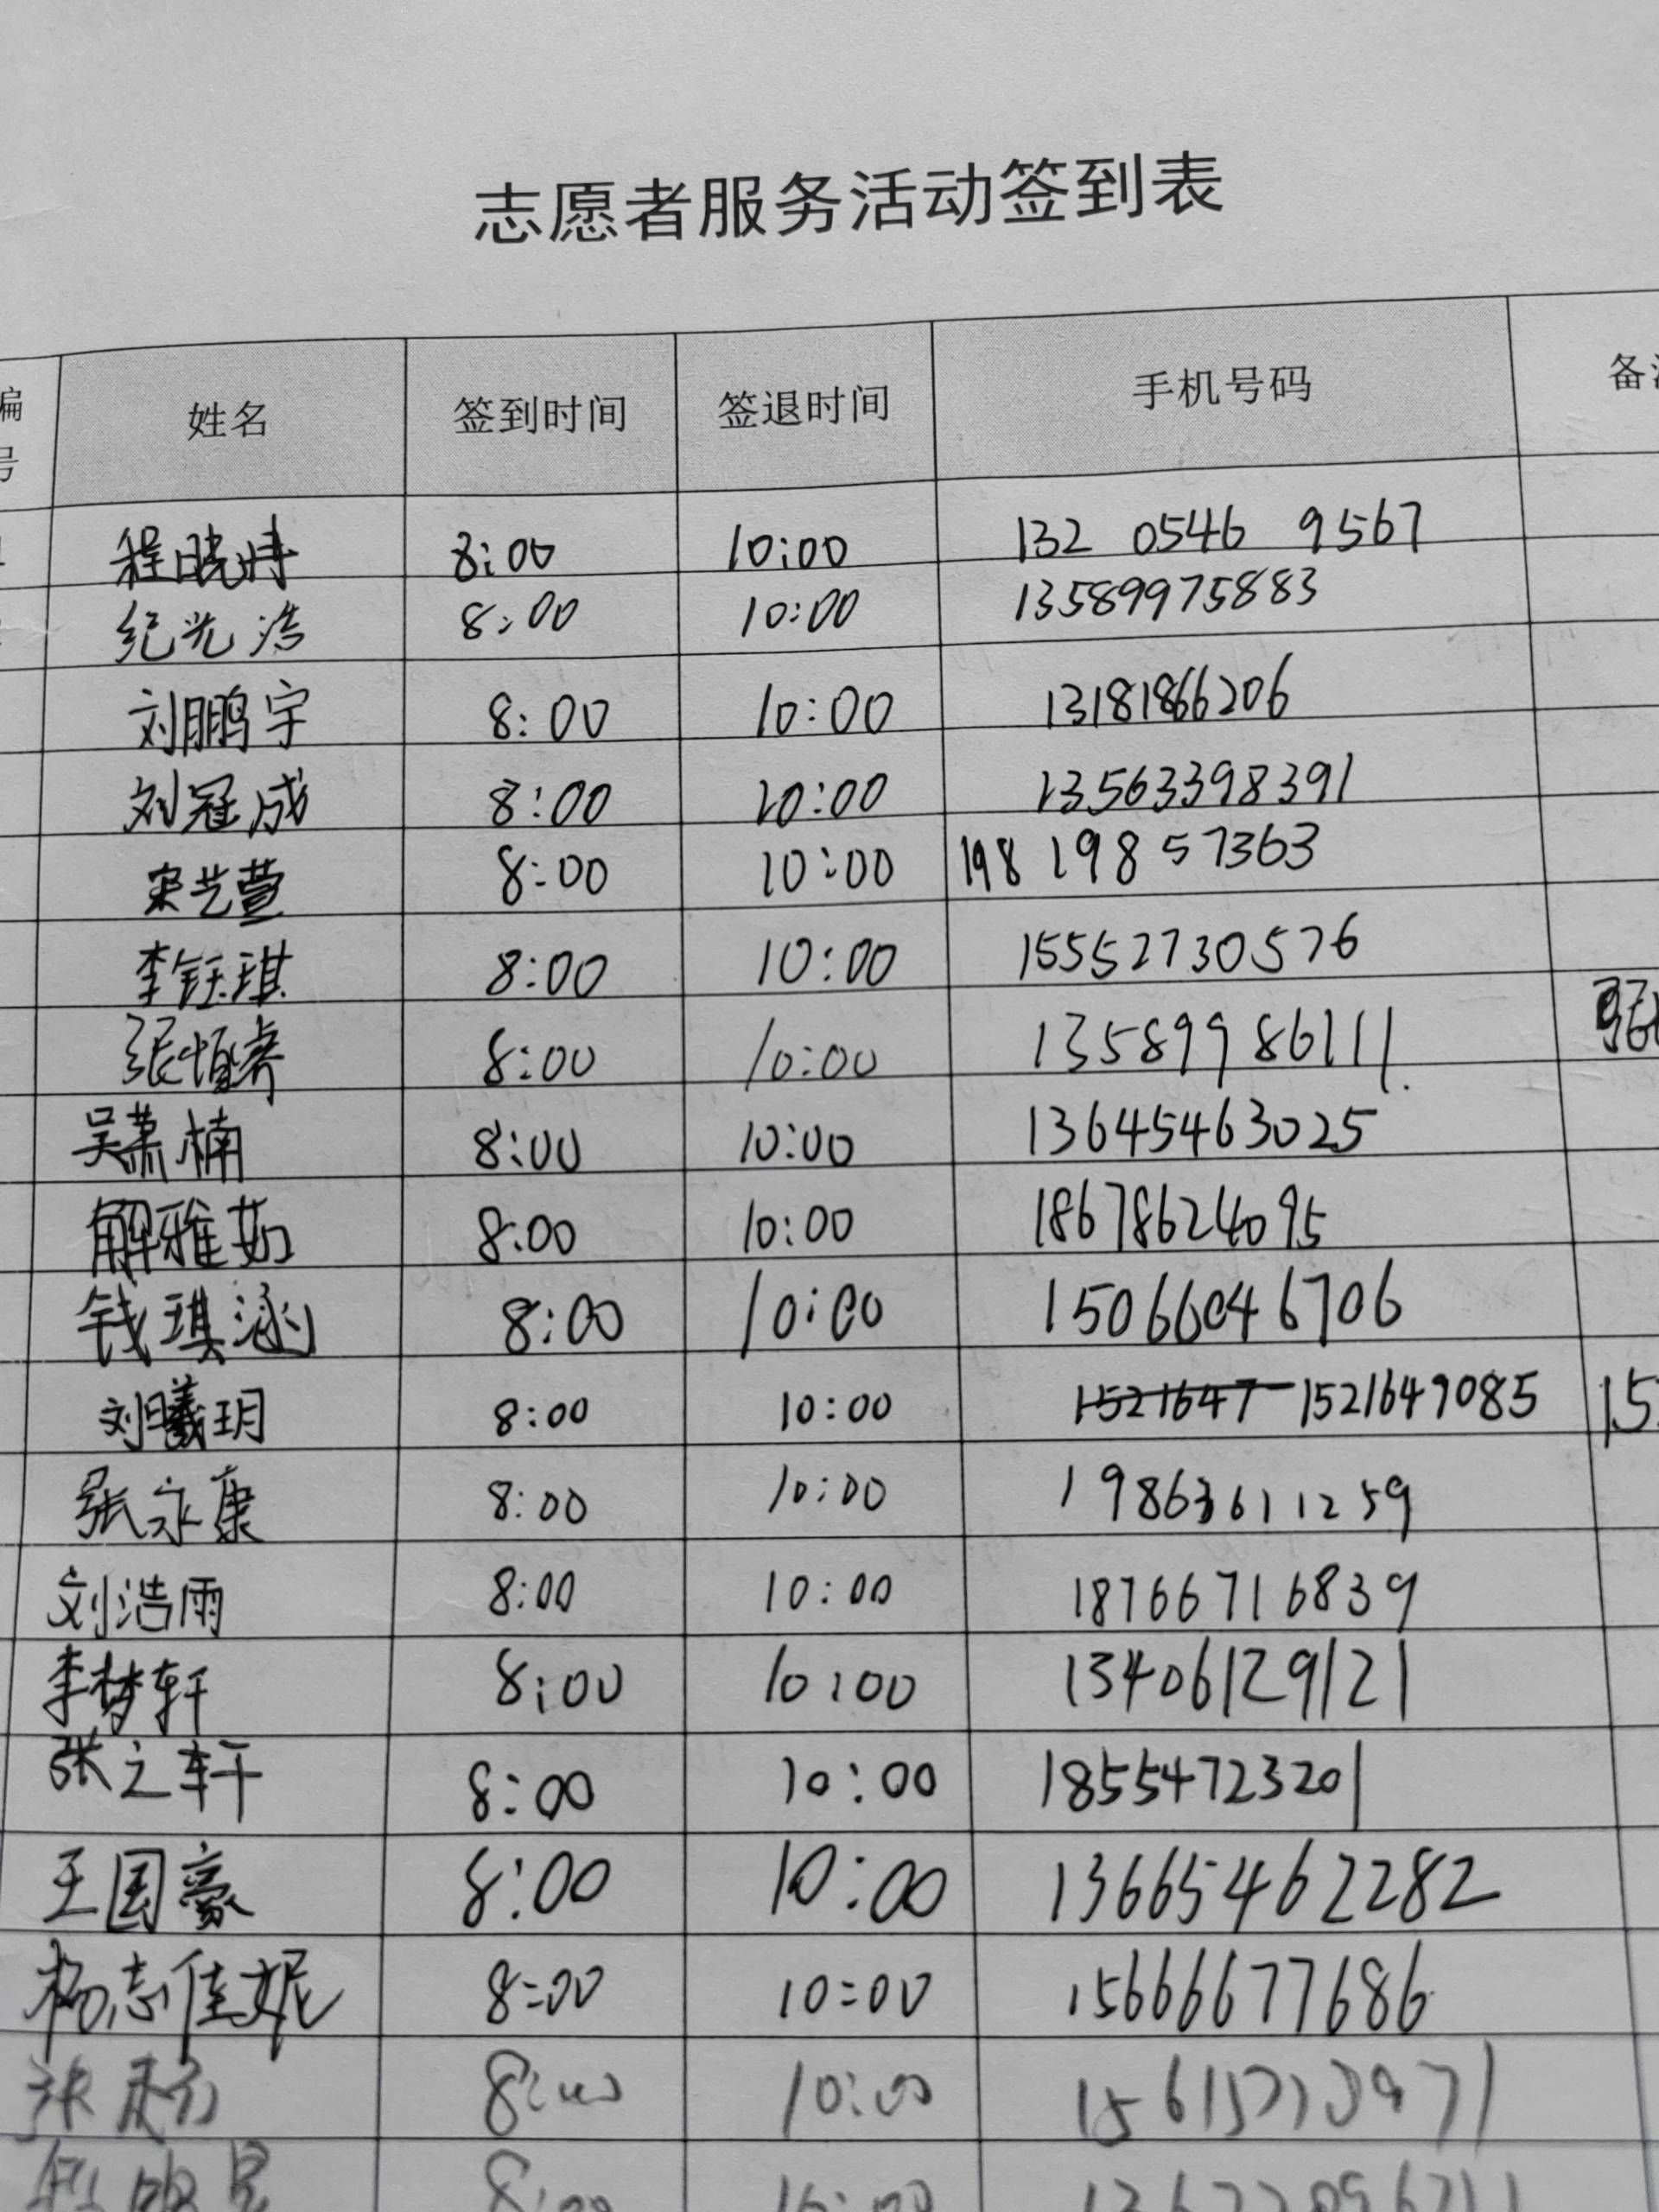 志愿者服务活动签到表
编号 姓名 签到时间 签退时间 手机号码 备
程晓婷 8:00 10:00 132 0546 9567
纪光浩 8:00 10:00 13589975883
刘鹏宇 8:00 10:00 13181866206
刘冠成 8:00 10:00 13563398391
宋艺萱 8:00 10:00 198 198 57363
李钰琪 8:00 10:00 15552730576
张 8:00 10:00 13589986111. 张
吴萧楠 8:00 10:00 13645463025
解雅茹 8:00 10:00 18678624095
钱琪涵 8:00 10:00 15066046706
刘曦玥 8:00 10:00 1521647 1521649085 15
张永康 8:00 10:00 19863611259
刘浩雨 8:00 10:00 18766716839
李梦轩 8:00 10:00 13406129121
张之轩 8:00 10:00 18554723201
王国豪 8:00 10:00 13665462282
杨志佳妮 8:00 10:00 15666677686
张 8:00 10:00
8:00 10:00